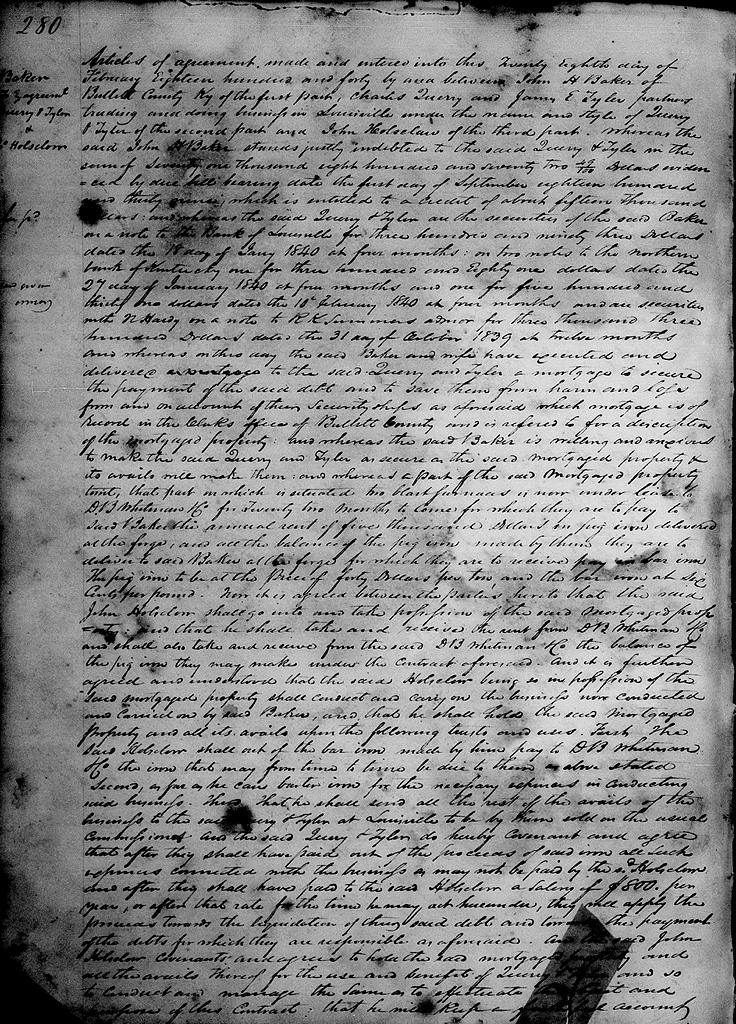 280
Baker
To } agreemt
Query & Tyler
&
Holsclaw
Articles of agreement made and entered into this Twenty eighth day of
February Eighteen hundred and forty by and between John H Baker of
Bullitt County Ky of the first part, Charles Query and James E Tyler partners
trading and doing business in Louisville under the name and style of Query
& Tyler of the second part and John Holsclaw of the third part. Whereas the
said John H Baker stands justly indebted to the said Query & Tyler in the
sum of Seventy one thousand eight hundred and seventy two Dollars eviden
=ced by due bill bearing date the first day of September eighteen hundred
and thirty nine, which is entitled to a credit of about fifteen Thousand
Dollars: and whereas the said Query & Tyler are the securities of the said Baker
on a note to the Bank of Louisville for three hundred and ninety three Dollars
dated the 18 day of Jany 1840 at four months: on two notes to the northern
bank of Kentucky one for three hundred and Eighty one dollars dated the
27 day of January 1840 at four months and one for five hundred and
thirty one dollars dated the 10th February 1840 at four months and are securities
with N Hardy on a note to R K Summers admor for three thousand three
hundred Dollars dated the 31 day of October 1839 at twelve months
and whereas on this day the said Baker and wife have executed and
delivered a mortgage to the said Query and Tyler a mortgage to secure
the payment of the said debt and to save them from harm and loss
from and on account of their Securityships as aforesaid which mortgage is of
record in the Clerks office of Bullitt County and is refered to for a description
of the mortgaged property: and whereas the said Baker is willing and anxious
to make the said Query and Tyler as secure as the said mortgaged property &
its avails will make them: and whereas a part of the said mortgaged property
towit, that part on which is situated two blast furnaces is now under lease to
D B Whiteman &Co for Twenty two months to come for which they are to pay to
said Baker the annual rent of five thousand Dollars in pig iron delivered
at the forge, and all the balance of the pig iron made by them they are to
deliver to said Baker at the forge for which they are to receive pay in bar iron
The pig iron to be at the Price of forty Dollars per ton and the bar iron at Six
Cents per pound. Now it is agreed between the parties hereto that the said
John Holsclaw shall go into and take possession of the said mortgaged prop
=erty and that he shall take and receive the rent from D B Whiteman &Co
and shall also take and receive from the said D B Whiteman &Co the balance of
the pig iron they may make under the Contract aforesaid. And it is further
agreed and understood that the said Holsclaw being so in possession of the
said mortgaged property shall conduct and carry on the business now conducted
and carried on by said Baker, and that he shall hold the said mortgaged
property and all its avails upon the following trusts and uses. First The
said Holsclaw shall out of the bar iron made by him pay to D B Whiteman
&Co the iron that may from time to time be due to them as above stated
Second, as far as he can barter iron for the necessary expences in conducting
said business. Third That he shall send all the rest of the avails of the
business to the said Query & Tyler at Louisville to be by them sold on the usual
Commissions And the said Query & Tyler do hereby Covenant and agree
that after they shall have paid out of the proceeds of said iron all such
expences connected with the business as may not be paid by the sd Holsclaw
and after they shall have paid to the said Holsclaw a salary of $800. per
year, or after that rate for the time he may act hereunder, they will apply the
proceeds towards the liquidation of their said debt and the payment
of the debts for which they are responsible as aforesaid. And the said John
Holsclaw Covenants and agrees to hold the said mortgaged property and
all the avails thereof for the use and benefit of Query & Tyler and so
to conduct and manage the same as to effectuate the and
purpose of this Contract: that he will keep a account